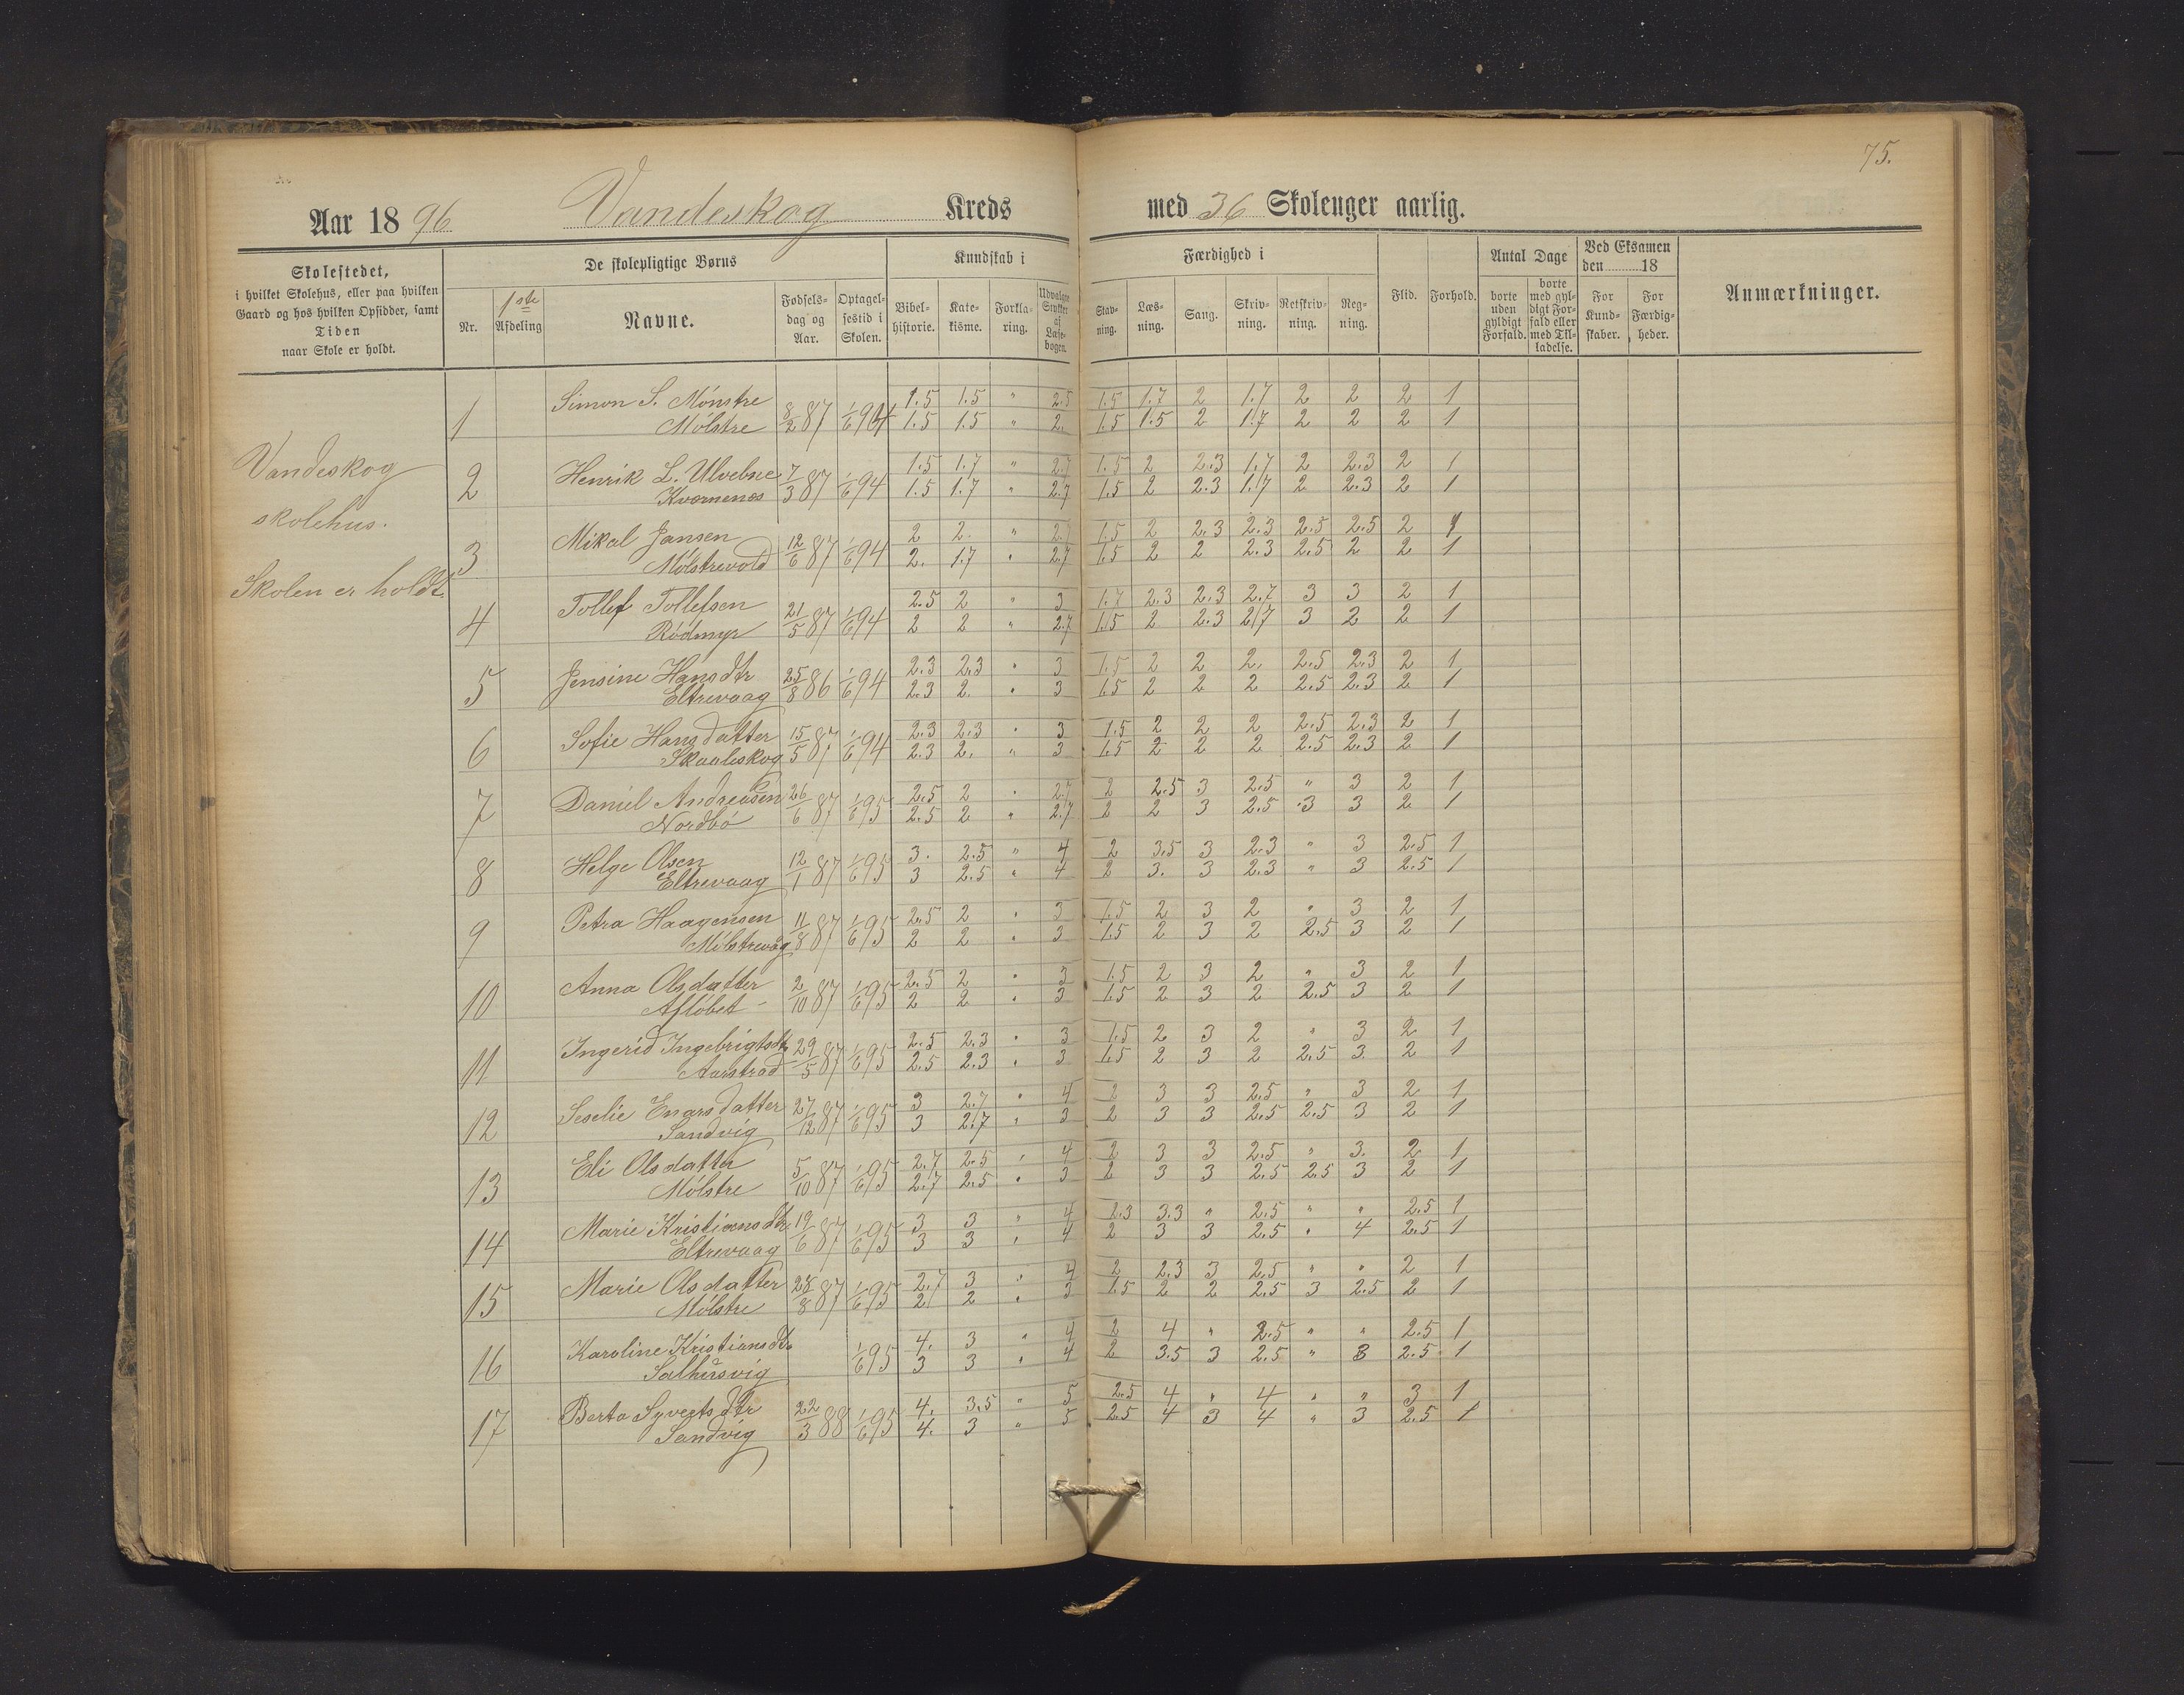 75.
Aar 1896 Vandeskog Kreds med 36 Skoleuger aarlig.
Skolestedet,
i hvilket Skolehus, eller paa hvilken
Gaard og hos hvilken Opsidder, samt
Tiden
naar Skole er holdt.
De skolepligtige Børns
Nr.
1ste
Afdeling
Navne.
Fødsels-
dag og
Aar.
Optagel-
sestid i
Skolen.
Kundskab i
Bibel-
historie.
Kate-
kisme.
Forkla-
ring.
Udvalgte
Stykker
af
Læse-
bogen.
Færdighed i
Stav-
ning.
Læs-
ning.
Sang.
Skriv-
ning.
Retskriv-
ning.
Reg-
ning.
Flid.
Forhold.
Antal Dage
borte
uden
gyldigt
Forfald.
borte
med gyl-
digt For-
fald eller
med Til-
ladelse.
Ved Eksamen
den 18
For
Kund-
skaber.
For
Færdig-
heder.
Anmærkninger.
Vandeskog
skolehus.
Skolen er holdt.
1 Simon S. Mønstre 8/2 87 1/6 94 1.5 1.5 " 2.5 1.5 1.7 2 1.7 2 2 2 1
Mølstre 1.5 1.5 " 2. 1.5 1.5 2 1.7 2 2 2 1
2 Henrik L. Ulvebne 7/3 87 1/6 94 1.5 1.7 " 2.7 1.5 2 2.3 1.7 2 2.3 2 1
Kvornenes 1.5 1.7 " 2.7 1.5 2 2.3 1.7 2 2.3 2 1
3 Mikal Jansen 12/6 87 1/6 94 2 2. " 2.7 1.5 2 2.3 2.3 2.5 2.5 2 1
Mølstrevold 2. 1.7 " 2.7 1.5 2 2 2.3 2.5 2 2 1
4 Tollef Tollefsen 21/5 87 1/6 94 2.5 2 " 3 1.7 2.3 2.3 2.7 3 3 2 1
Rødmyr 2 2 " 2.7 1.5 2 2.3 2.7 3 2 2 1
5 Jensine Hansdtr 25/8 86 1/6 94 2.3 2.3 " 3 1.5 2 2 2. 2.5 2.3 2 1
Eltrevaag 2.3 2. " 3 1.5 2 2 2 2.5 2.3 2 1
6 Sofie Hansdatter 15/5 87 1/6 94 2.3 2.3 " 3 1.5 2 2 2 2.5 2.3 2 1
Skaaleskog 2.3 2. " 3 1.5 2 2 2 2.5 2.3 2 1
7 Daniel Andreasen 26/6 87 1/6 95 2.5 2 " 2.7 2 2.5 3 2.5 " 3 2 1
Nordbø 2.5 2 " 2.7 2 2 3 2.5 3 3 2 1
8 Helge Olsen 12/1 87 1/6 95 3. 2.5 " 4 2 3.5 3 2.3 " 3 2.5 1
Eltrevaag 3 2.5 " 4 2 3. 3 2.3 " 3 2.5 1
9 Petra Haagensen 11/8 87 1/6 95 2.5 2 " 3 1.5 2 3 2 " 3 2 1
Mølstrevåg 2 2 " 3 1.5 2 3 2 2.5 3 2 1
10 Anna Olsdatter 2/10 87 1/6 95 2.5 2 " 3 1.5 2 3 2 " 3 2 1
Afløbet 2 2 " 3 1.5 2 3 2 2.5 3 2 1
11 Ingerid Ingebrigtsdtr 29/5 87 1/6 95 2.5 2.3 " 3 1.5 2 3 2 " 3 2 1
Aarstrad 2.5 2.3 " 3 1.5 2 3 2 2.5 3. 2 1
12 Seselie Enarsdatter 27/12 87 1/6 95 3 2.7 " 4 2 3 3 2.5 " 3 2 1
Sandvig 3 2.7 " 3 2 3 3 2.5 2.5 3 2 1
13 Eli Olsdatter 5/10 87 1/6 95 2.7 2.5 " 4 2 3 3 2.5 " 3. 2. 1
Mølstre 2.7 2.5 " 3 2 3 3 2.5 2.5 3 2 1
14 Marie Kristiansdtr 19/6 87 1/6 95 3 3 " 4 2.3 3.3 " 2.5 " " 2.5 1
Eltrevaag 3 3 " 4 2 3 3 2.5 " 4 2.5 1
15 Marie Olsdatter 28/8 87 1/6 95 2.7 3 " 4 2 2.3 3 2.5 " " 2 1
Mølstre 2 2 " 3 1.5 2 2 2.5 3 2.5 2 1
16 Karoline Kristiansdtr 1/6 95 4. 3 " 4 2 4 " 2.5 " " 2.5 1
Salhusvig 3 3 " 4 2 3.5 3 2.5 " 3 2.5 1
17 Berta Syvertsdtr 22/3 88 1/6 95 4. 3.5 " 5 2.5 4 " 4 " " 3 1
Sandvig 4. 3 " 5 2.5 4 3 4 " 3 2.5 1